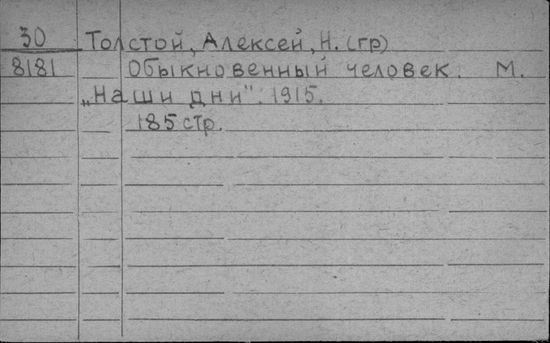 30 Толстой, Алексей, Н. (гр)
8181 Обыкновенный человек. М.
„Наши дни". 1915.
185 стр.